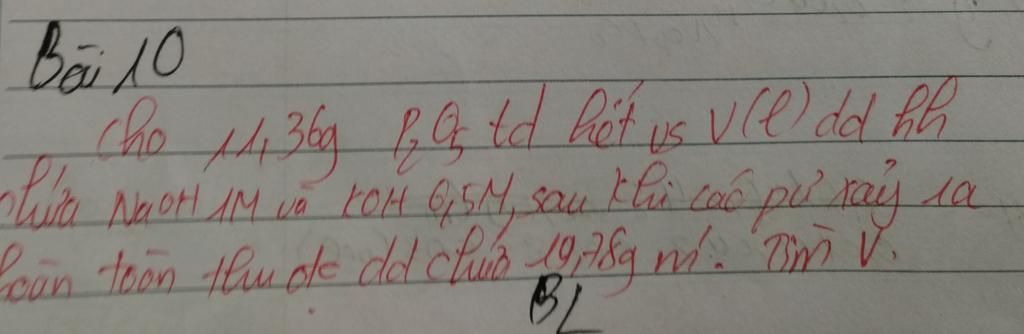 Bài 10
Cho 11,36g P₂O₅ td hết vs V(l) dd hh
chứa NaOH 1M và KOH 0,5M, sau khi các pứ xảy ra
hoàn toàn thu đc dd chứa 19,78g m'. Tìm V.
BL